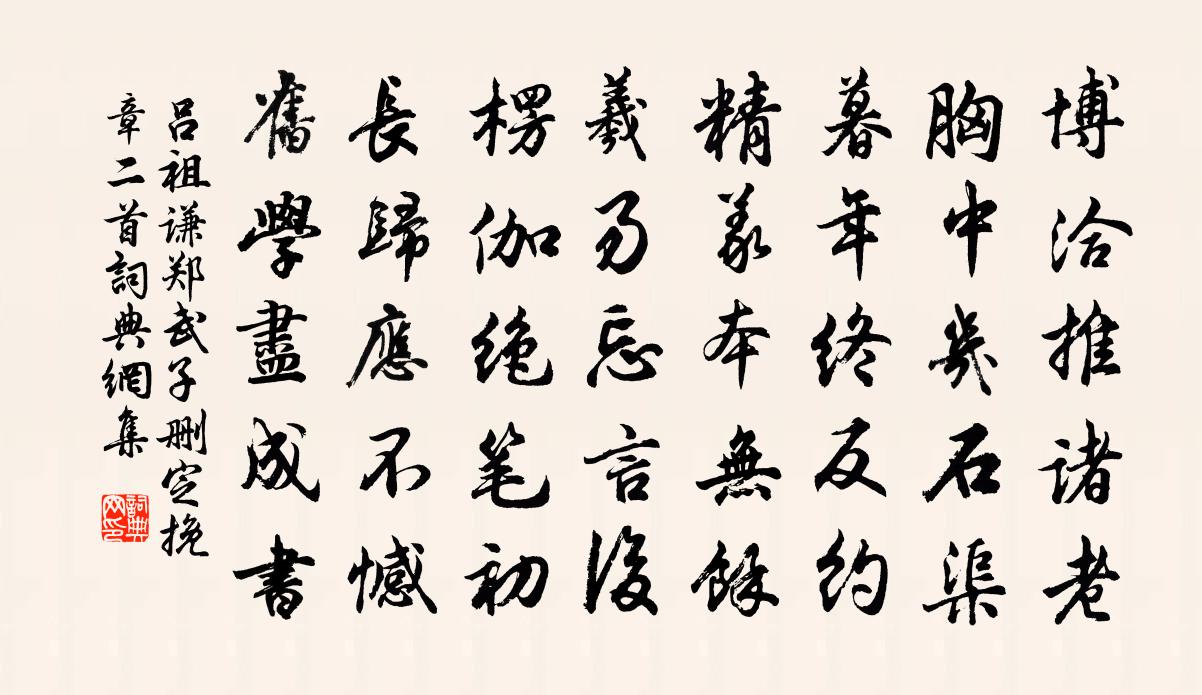 博洽推諸老
胸中幾石渠
暮年终反約
精義本無餘
羲易忘言後
楞伽绝笔初
長歸應不憾
舊學盡成書
吕祖谦郑武子删定挽
章二首詞典網集
詞典
网印